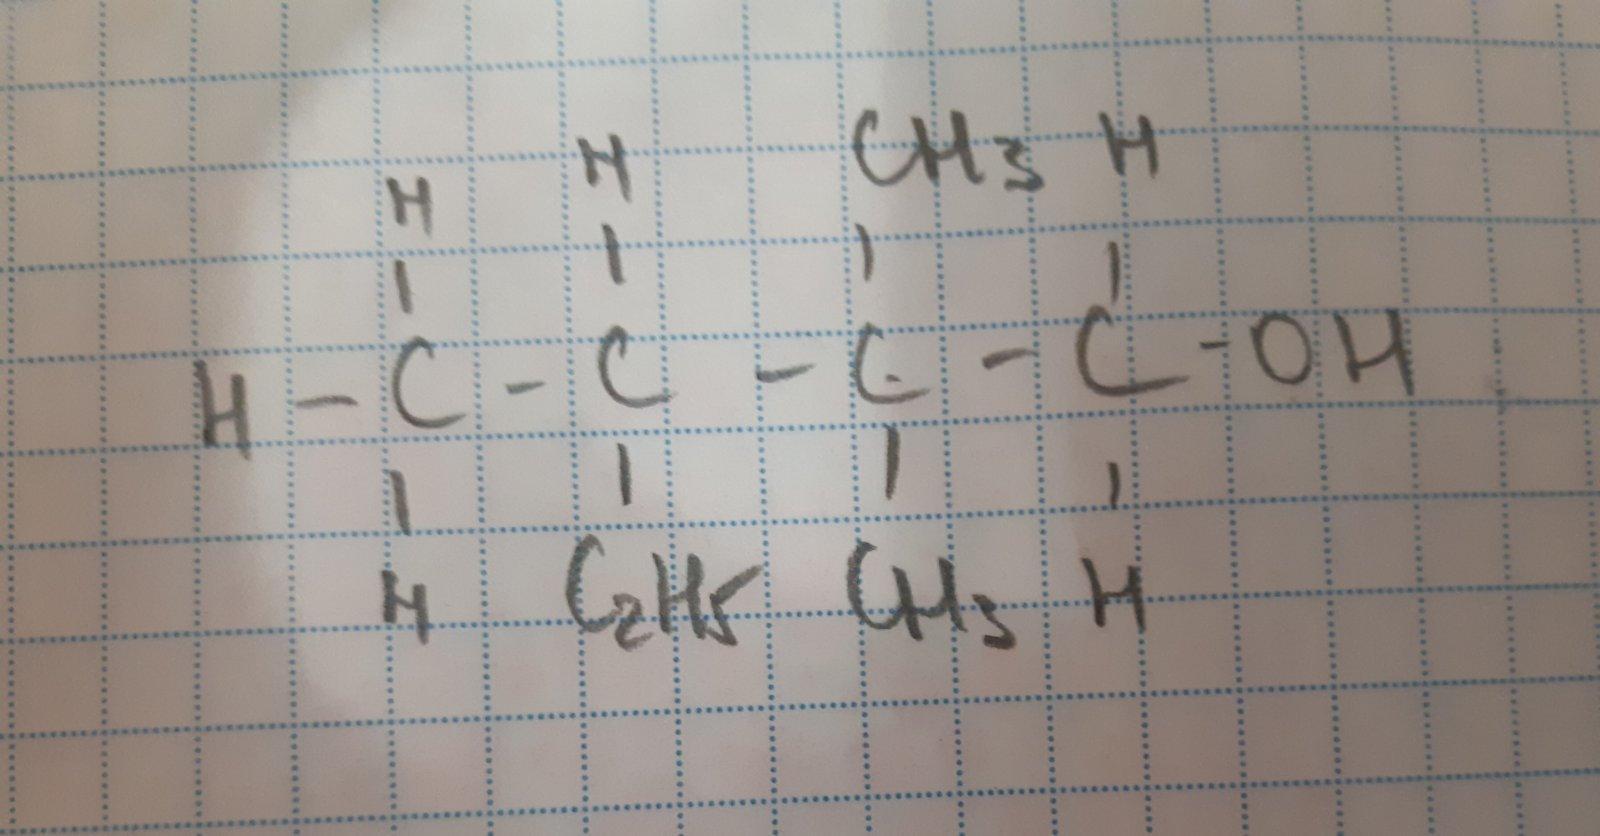 H H CH3 H
H - C - C - C - C - OH
H C2H5 CH3 H